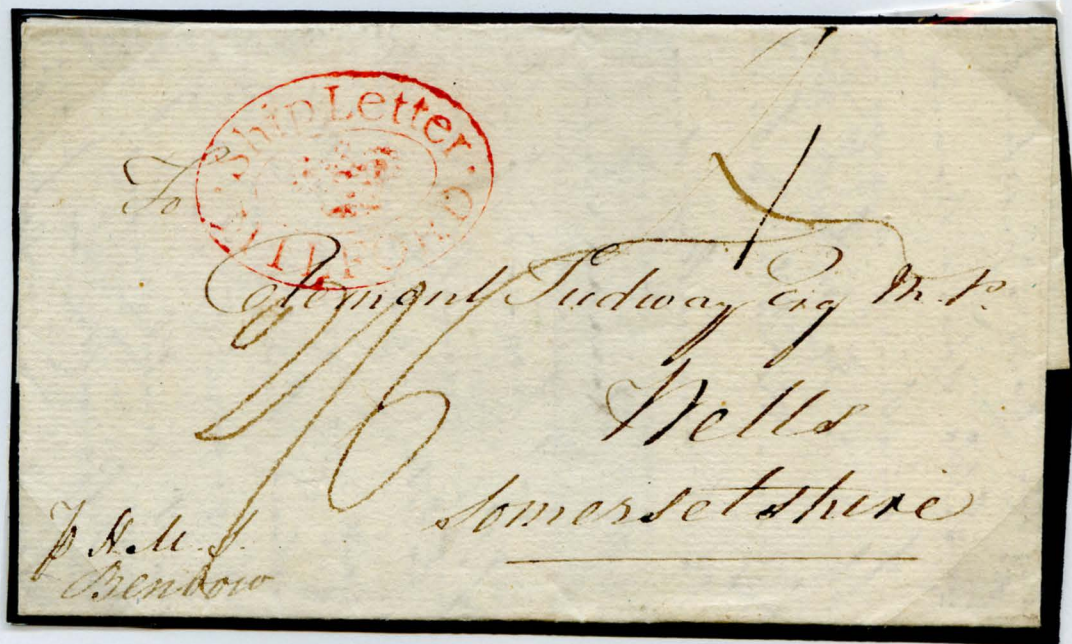 Ship Letter
MILFORD
To
Clement Tudway Esq M.P.
Wells
Somersetshire
p H.M.S.
Benbow